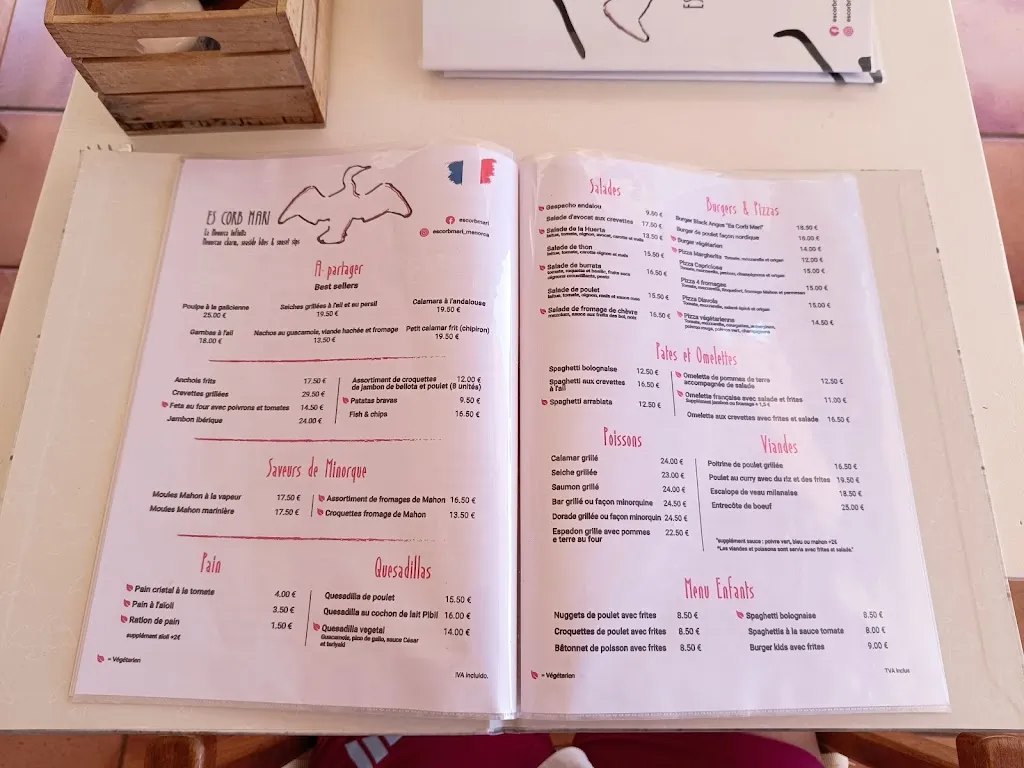 ES CORB MARI
La Menorca infinita
Menorcan charm, seaside bites & sunset sips
escorbmari
escorbmari_menorca
A partager
Best sellers
Poulpe à la galicienne
25.00 €
Seiches grillées à l'ail et au persil
19.50 €
Calamars à l'andalouse
19.50 €
Gambas à l'ail
18.00 €
Nachos au guacamole, viande hachée et fromage
13.50 €
Petit calamar frit (chipiron)
19.50 €
Anchois frits 17.50 €
Crevettes grillées 29.50 €
Feta au four avec poivrons et tomates 14.50 €
Jambon ibérique 24.00 €
Assortiment de croquettes 12.00 €
de jambon de bellota et poulet (8 unités)
Patatas bravas 9.50 €
Fish & chips 16.50 €
Saveurs de Minorque
Moules Mahon à la vapeur 17.50 €
Moules Mahon marinière 17.50 €
Assortiment de fromages de Mahon 16.50 €
Croquettes fromage de Mahon 13.50 €
Pain
Pain cristal à la tomate 4.00 €
Pain à l'aïoli 3.50 €
Ration de pain 1.50 €
supplément aioli +2€
Quesadillas
Quesadilla de poulet 15.50 €
Quesadilla au cochon de lait Pibil 16.00 €
Quesadilla vegetal 14.00 €
Guacamole, pico de gallo, sauce César
et teriyaki
= Végétarien
IVA incluido.
Salades
Gaspacho andalou 9.50 €
Salade d'avocat aux crevettes 17.50 €
Salade de la Huerta 13.50 €
laitue, tomate, oignon, avocat, carotte et maïs
Salade de thon 15.50 €
laitue, tomate, carotte oignon et maïs
Salade de burrata 16.50 €
tomate, roquette et basilic, fruits secs
oignons croustillants, pesto
Salade de poulet 15.50 €
laitue, tomate, oignon, maïs et sauce
Salade de fromage de chèvre 16.50 €
mezclum, sauce aux fruits des boi, noix
Burgers & Pizzas
Burger Black Angus "Es Corb Marí" 18.50 €
Burger de poulet façon nordique 16.00 €
Burger végétarien 14.00 €
Pizza Margherita Tomate, mozzarella et origan 12.00 €
Pizza Capriciosa 15.00 €
Tomate, mozzarella, jambon, champignons et origan
Pizza 4 fromages 15.00 €
Tomate, mozzarella, Roquefort, fromage Mahon et parmesan
Pizza Diavola 15.00 €
Tomate, mozzarella, salami épicé et origan
Pizza végétarienne 14.50 €
Tomate, mozzarella, courgettes, aubergines,
poivron rouge, poivron vert, champignons
Pates et Omelettes
Spaghetti bolognaise 12.50 €
Spaghetti aux crevettes 16.50 €
à l'ail
Spaghetti arrabiata 12.50 €
Omelette de pommes de terre 12.50 €
accompagnée de salade
Omelette française avec salade et frites 11.00 €
Supplément jambon ou fromage + 1,5 €
Omelette aux crevettes avec frites et salade 16.50 €
Poissons
Calamar grillé 24.00 €
Seiche grillée 23.00 €
Saumon grillé 24.00 €
Bar grillé ou façon minorquine 24.50 €
Dorade grillée ou façon minorquin 24.50 €
Espadon grille avec pommes 22.50 €
e terre au four
Viandes
Poitrine de poulet grillée 16.50 €
Poulet au curry avec du riz et des frites 19.50 €
Escalope de veau milanaise 18.50 €
Entrecôte de boeuf 25.00 €
*supplément sauce : poivre vert, bleu ou mahon +2€
*Les viandes et poissons sont servis avec frites et salade.*
Menu Enfants
Nuggets de poulet avec frites 8.50 €
Croquettes de poulet avec frites 8.50 €
Bâtonnet de poisson avec frites 8.50 €
Spaghetti bolognaise 8.50 €
Spaghettis à la sauce tomate 8.00 €
Burger kids avec frites 9.00 €
= Végétarien
TVA inclus